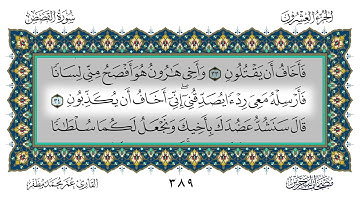 الجزء العشرون
سورة القصص
فَأَخَافُ أَن يَقْتُلُونِ ٣٣ وَأَخِى هَٰرُونُ هُوَ أَفْصَحُ مِنِّى لِسَانًا
فَأَرْسِلْهُ مَعِىَ رِدْءًا يُصَدِّقُنِىٓ ۖ إِنِّىٓ أَخَافُ أَن يُكَذِّبُونِ ٣٤
قَالَ سَنَشُدُّ عَضُدَكَ بِأَخِيكَ وَنَجْعَلُ لَكُمَا سُلْطَٰنًا
٣٨٩